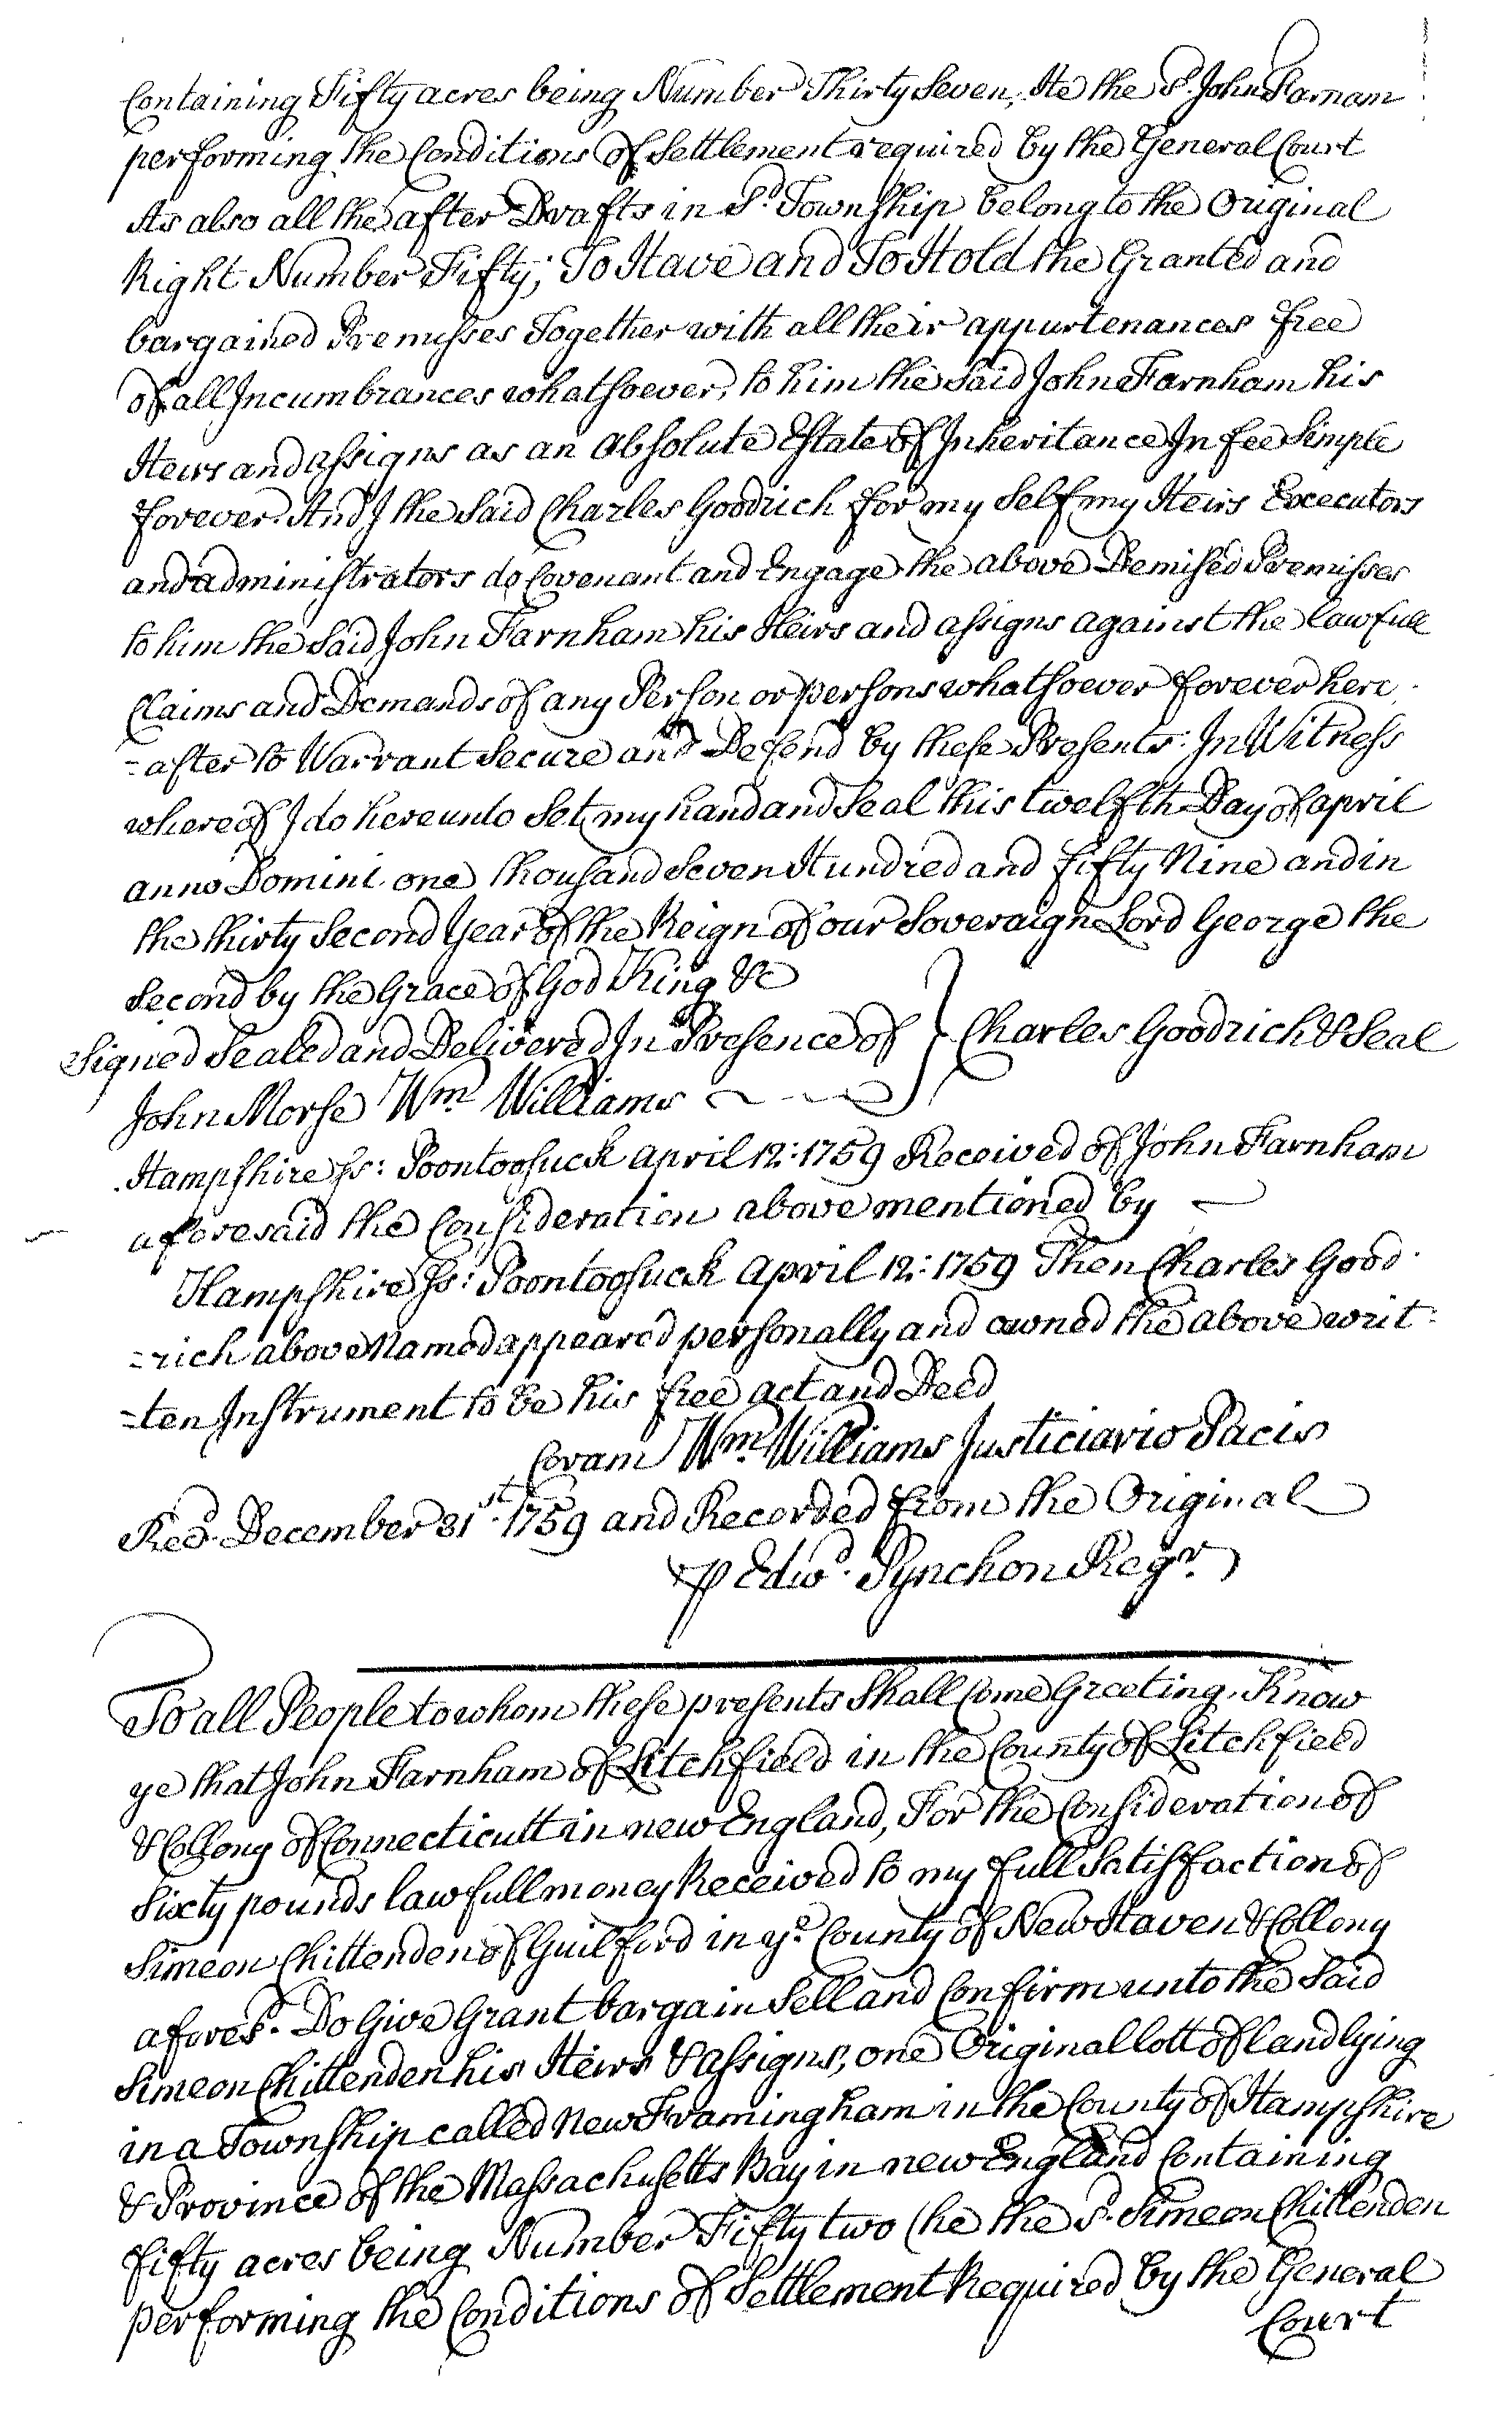 Containing Fifty acres being Number Thirty Seven, He the Sd. John Farnam
performing the Conditions of Settlement required by the General Court
As also all the after Drafts in Sd. Township belong to the Original
Right Number Fifty; To Have and To Hold the Granted and
bargained Premisses Together with all their appurtenances free
of all Incumbrances whatsoever, to him the said John Farnham his
Heirs and assigns as an absolute Estate of Inheritance In fee Simple
forever. And I the Said Charles Goodrich for my Self my Heirs Executors
and administrators do Covenant and Engage the above Demised Premisses
to him the Said John Farnham his Heirs and assigns against the lawfull
Claims and Demands of any Person or persons whatsoever forever here
=after to Warrant Secure and Defend by these Presents: In Witness
whereof I do hereunto Set my hand and Seal this twelfth Day of april
anno Domini one thousand Seven Hundred and fifty Nine and in
the thirty Second Year of the Reign of our Soveraign Lord George the
Second by the Grace of God King &c
Signed Sealed and Delivered In Presence of } Charles Goodrich & Seal
John Morse Wm. Williams
Hampshire Ss: Poontoosuck april 12: 1759 Received of John Farnham
aforesaid the Consideration above mentioned by
Hampshire Ss: Poontoosuck april 12: 1759 Then Charles Good
=rich above Named appeared personally and owned the above writ=
=ten Instrument to be his free act and Deed
Coram Wm. Williams Justiciario Pacis
Recd. December 31st. 1759 and Recorded from the Original
P Edwd. Pynchon Regr.
To all People to whom these presents Shall Come Greeting. Know
ye that John Farnham of Litchfield in the County of Litchfield
& Collony of Connecticutt in new England, For the Consideration of
Sixty pounds lawfull money Received to my full Satisfaction of
Simeon Chittenden of Guilford in ye. County of New Haven & Collony
afores.d Do Give Grant bargain Sell and Confirm unto the Said
Simeon Chittenden his Heirs & assigns, one Original lott of land lying
in a Township called New Framingham in the County of Hampshire
& Province of the Massachusetts Bay in new England Containing
fifty acres being Number Fifty two (he the sd. Simeon Chittenden
performing the Conditions of Settlement Required by the General
Court